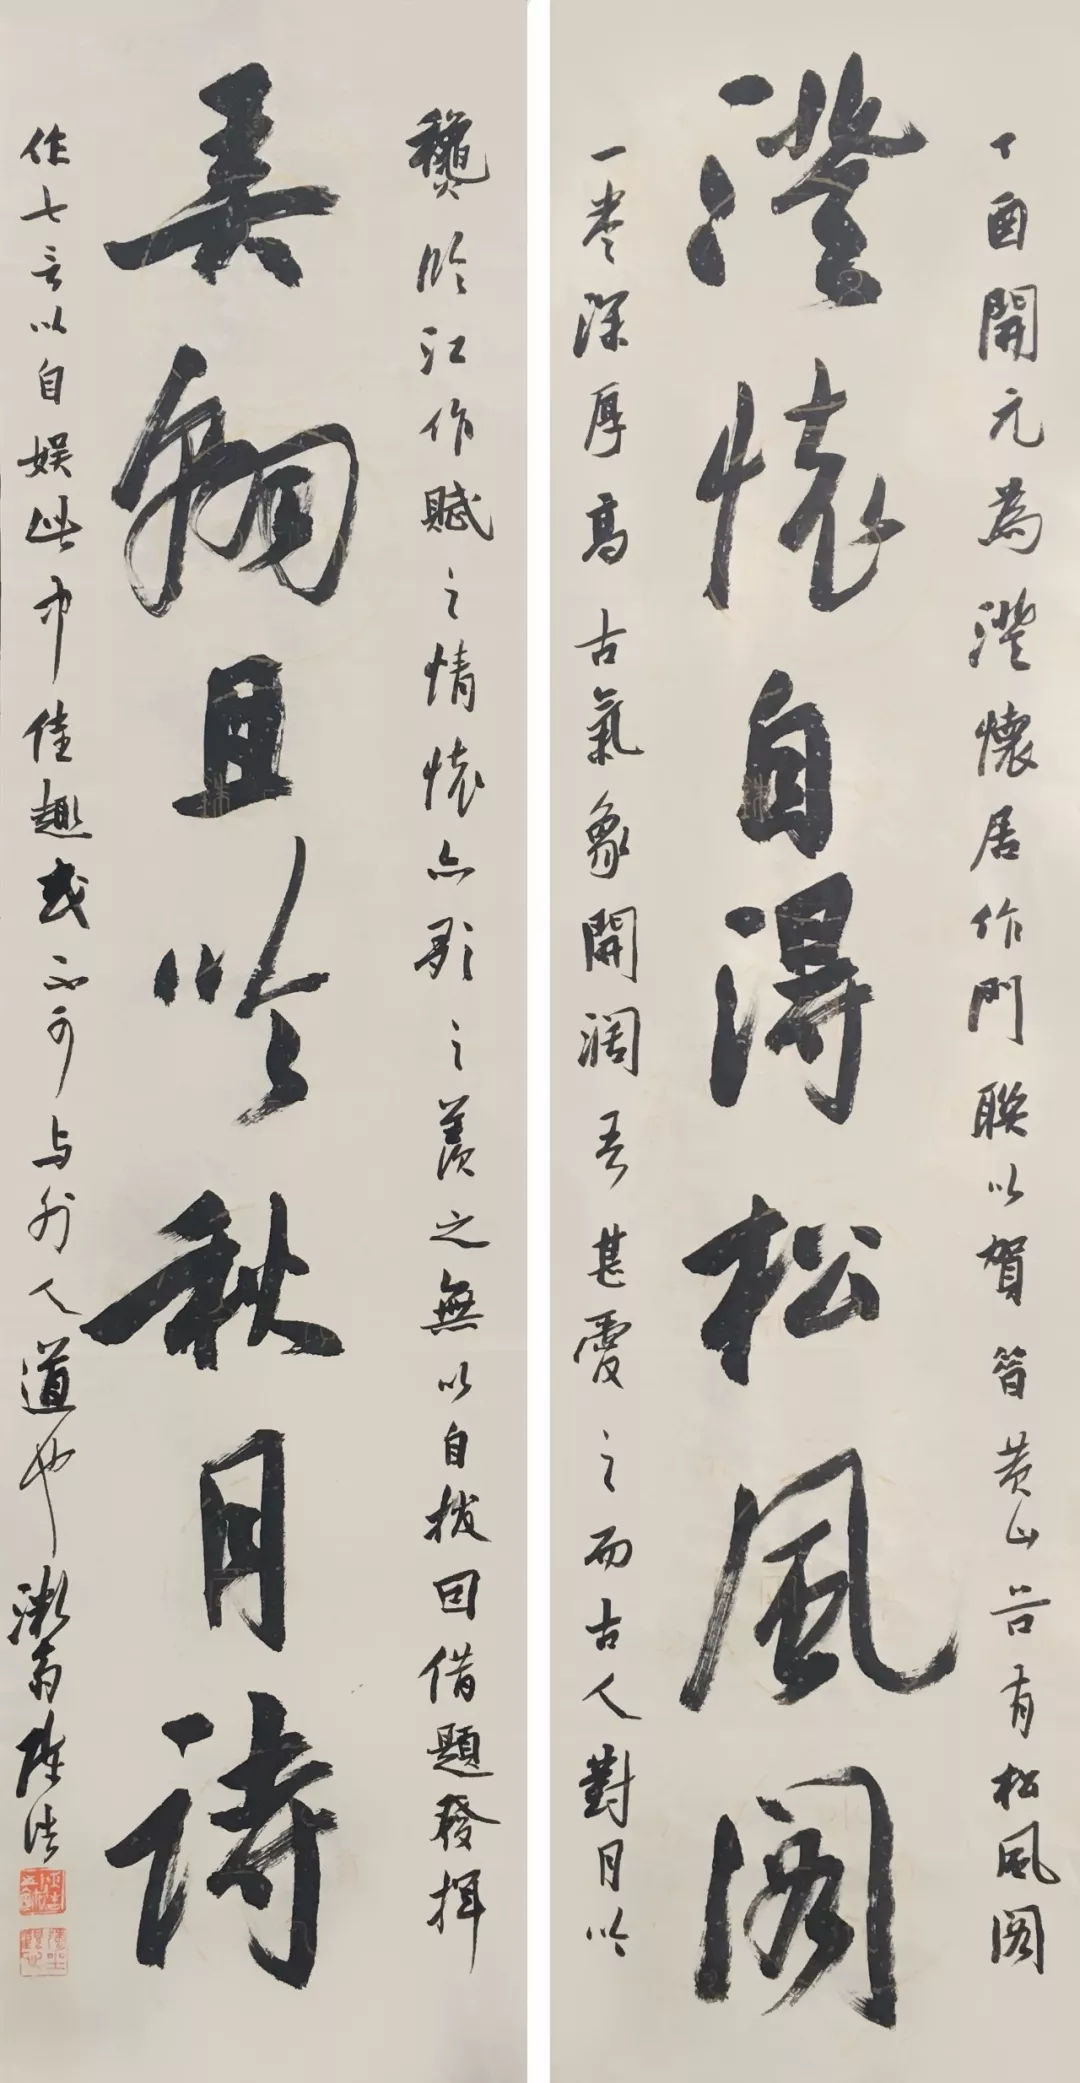 丁酉開元為澄懷居作門聯以賀昔黄山谷有松風阁
澄懷自得松風阁
一卷深厚高古氣象開阔吾甚愛之而古人對月吟
龝臨江作賦之情懷亦歌之羨之無以自拔因借題發揮
美物且吟秋月詩
作七言以自娱此中佳趣或不可与外人道也 漱